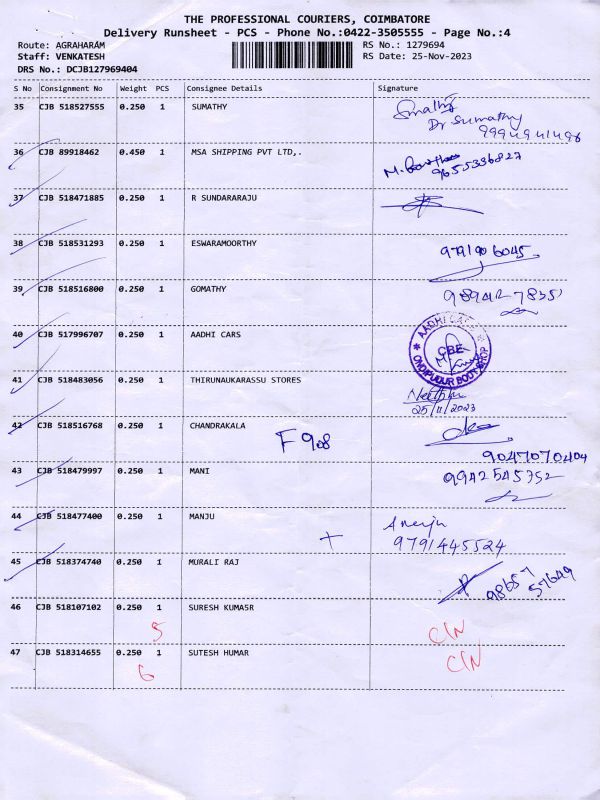 THE PROFESSIONAL COURIERS, COIMBATORE
Delivery Runsheet - PCS - Phone No.:0422-3505555 - Page No.:4
Route: AGRAHARAM
RS No.: 1279694
Staff: VENKATESH
RS Date: 25-Nov-2023
DRS No.: DCJB127969404
S No Consignment No Weight PCS Consignee Details Signature
35 CJB 518527555 0.250 1 SUMATHY
Dr Sumathy
36 CJB 89918462 0.450 1 MSA SHIPPING PVT LTD,.
9655336827
37 CJB 518471885 0.250 1 R SUNDARARAJU
38 CJB 518531293 0.250 1 ESWARAMOORTHY
9791906045
39 CJB 518516800 0.250 1 GOMATHY
9894127835
40 CJB 517996707 0.250 1 AADHI CARS
AADHI CARS
CBE
41 CJB 518483056 0.250 1 THIRUNAUKARASSU STORES
25/11/2023
42 CJB 518516768 0.250 1 CHANDRAKALA
F 908
9047070404
43 CJB 518479997 0.250 1 MANI
9942545352
44 CJB 518477400 0.250 1 MANJU
9791445524
45 CJB 518374740 0.250 1 MURALI RAJ
98657 57649
46 CJB 518107102 0.250 1 SURESH KUMA5R
5 CIN
47 CJB 518314655 0.250 1 SUTESH HUMAR
6 CIN